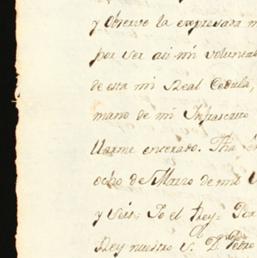 y observe la expresada
por ser asi mi voluntad
de esta mi Real Cedula,
mano de mi Infrascrito
llarme enterado. Fha en
ocho de Marzo de mil
y seis. Yo el Rey. Por
Rey nuestro S. D. Pedro